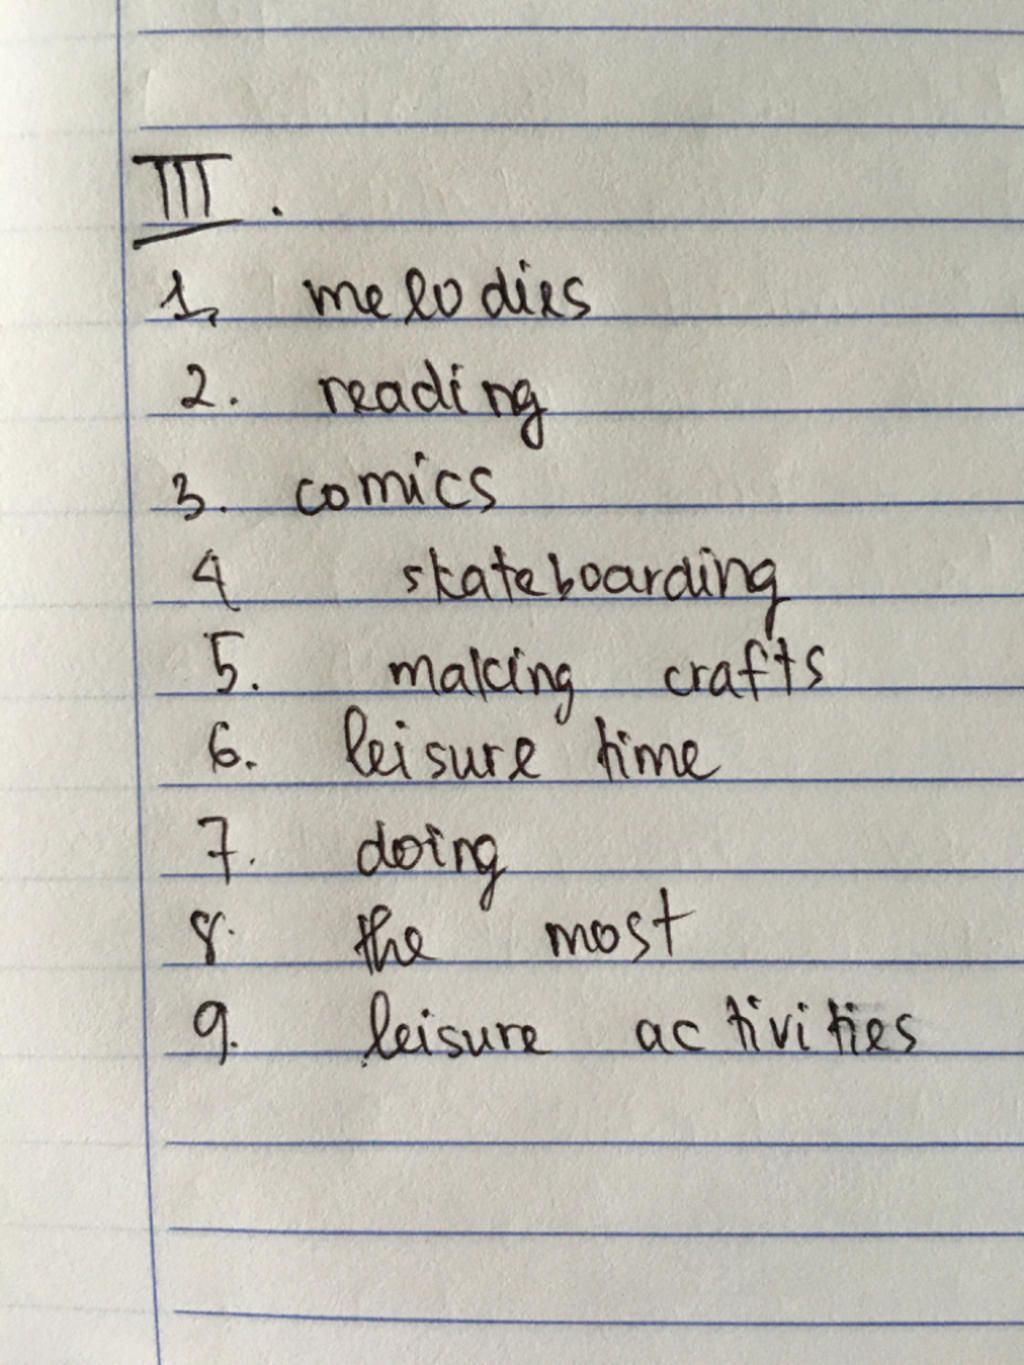 III.
1. melodies
2. reading
3. comics
4 skateboarding
5. making crafts
6. leisure time
7. doing
8. the most
9. leisure activities